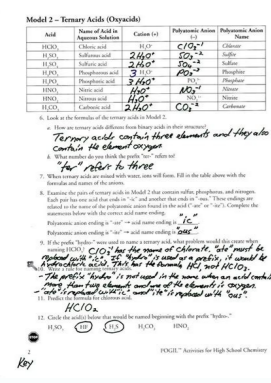 Model 2 – Ternary Acids (Oxyacids)
Acid Name of Acid in Aqueous Solution Cation (+) Polyatomic Anion (–) Polyatomic Anion Name
HClO₃ Chloric acid H₃O⁺ ClO₃⁻¹ Chlorate
H₂SO₃ Sulfurous acid 2H₃O⁺ SO₃⁻² Sulfite
H₂SO₄ Sulfuric acid 2H₃O⁺ SO₄⁻² Sulfate
H₃PO₃ Phosphorous acid 3 H₃O⁺ PO₃⁻³ Phosphite
H₃PO₄ Phosphoric acid 3 H₃O⁺ PO₄³⁻ Phosphate
HNO₃ Nitric acid H₃O⁺ NO₃⁻¹ Nitrate
HNO₂ Nitrous acid H₃O⁺ NO₂⁻ Nitrite
H₂CO₃ Carbonic acid 2H₃O⁺ CO₃⁻² Carbonate
6. Look at the formulas of the ternary acids in Model 2.
a. How are ternary acids different from binary acids in their structure?
Ternary acids contain three elements and they also
contain the element oxygen.
b. What number do you think the prefix "ter-" refers to?
"ter" refers to three
7. When ternary acids are mixed with water, ions will form. Fill in the table above with the
formulas and names of the anions.
8. Examine the pairs of ternary acids in Model 2 that contain sulfur, phosphorous, and nitrogen.
Each pair has one acid that ends in "-ic" and another that ends in "-ous." These endings are
related to the name of the polyatomic anion found in the acid ("-ate" or "-ite"). Complete the
statements below with the correct acid name ending.
Polyatomic anion ending is "-ate" → acid name ending is "ic"
Polyatomic anion ending is "-ite" → acid name ending is "ous"
9. If the prefix "hydro-" were used to name a ternary acid, what problem would this create when
naming HClO₃? ClO₃⁻ has the name of chlorate. "ate" must be
replaced with "ic". If "hydro" is used as a prefix, it would be
hydrochloric acid. This has the formula HCl, not HClO₃.
10. Write a rule for naming ternary acids.
- The prefix "hydro" is not used in the name when an acid contains
more than two elements and one of the elements is oxygen.
- "ate" is replaced with "ic" and "ite" is replaced with "ous".
11. Predict the formula for chlorous acid.
HClO₂
12. Circle the acid(s) below that would be named beginning with the prefix "hydro-."
H₂SO₃ HF H₂S H₂CO₃ HNO₂
STOP
2 POGIL™ Activities for High School Chemistry
Key